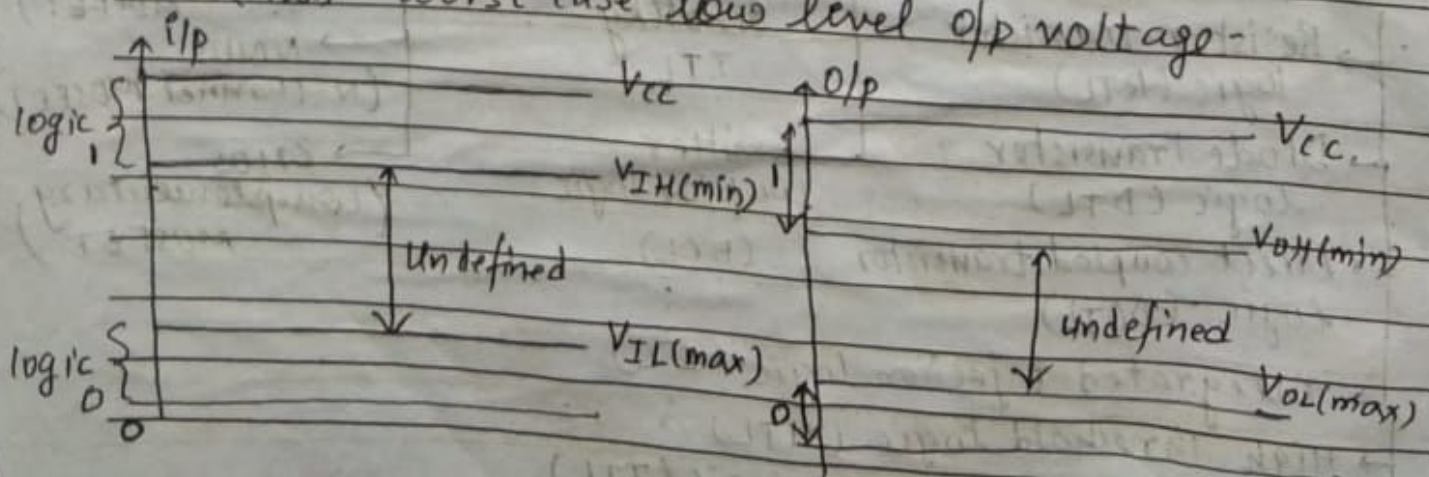 worst case low level o/p voltage-
i/p
Vcc
logic 1
VIH(min)
Undefined
VIL(max)
logic 0
0
O/p
Vcc
1
VOH(min)
undefined
VOL(max)
0